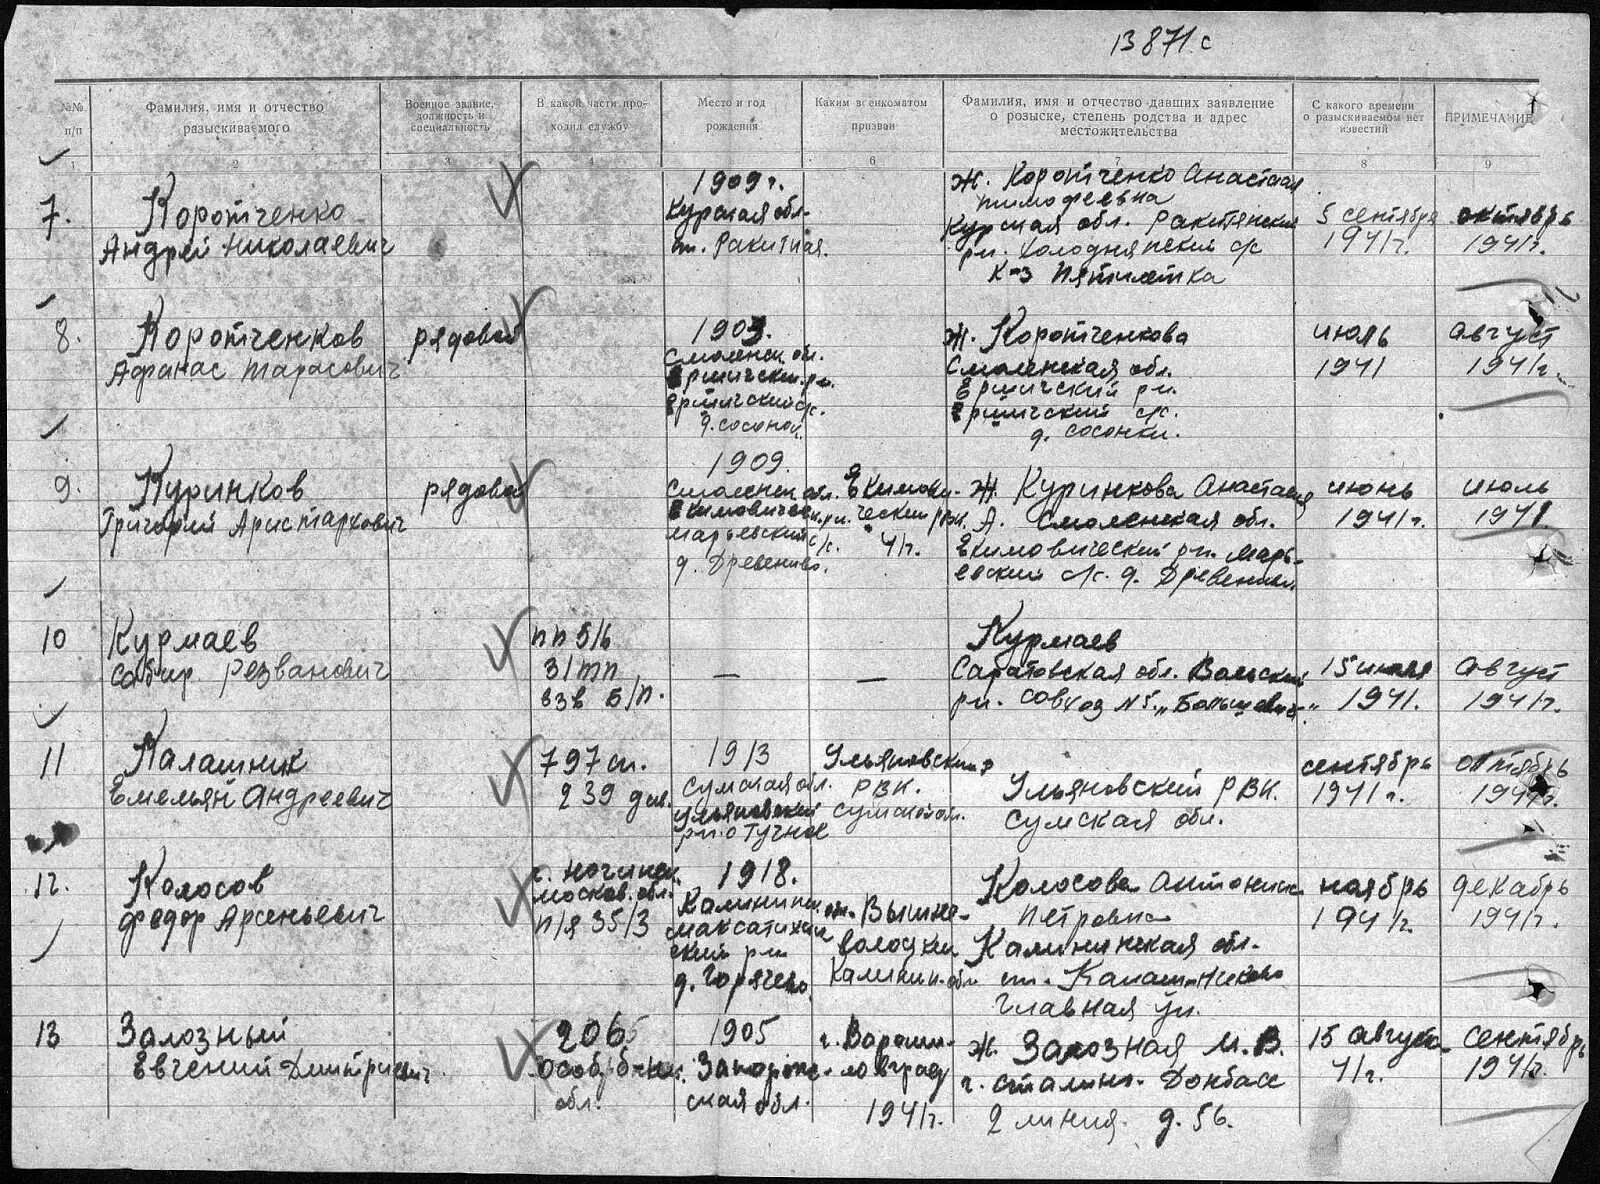 13871с
№№ п/п
Фамилия, имя и отчество разыскиваемого
Военное звание, должность и специальность
В какой части проходил службу
Место и год рождения
Каким военкоматом призван
Фамилия, имя и отчество давших заявление о розыске, степень родства и адрес местожительства
С какого времени о разыскиваемом нет известий
ПРИМЕЧАНИЕ
1 2 3 4 6 7 8 9
7.
Коротченко
Андрей Николаевич
1909 г.
Курская обл.
ст. Ракитная.
Ж. Коротченко Анастасия
Тимофеевна
Курская обл. Ракитянский
рн. Холоднянский с/с
К-з Пятилетка
5 сентября
1941г.
октябрь
1941г.
8.
Коротченков
Афанас Тарасович
рядовой
1903.
Смоленск. обл.
Ершичский рн.
Ершичский с/с.
Ж. Коротченкова
Смоленская обл.
Ершичский рн.
Ершичский с/с.
д. Сосонки.
июль
1941
август
1941г.
9.
Куринков
Григорий Аристархович
рядовой
1909.
Смоленск. обл.
Екимовическ. рн.
Марьевский с/с.
Екимови-
ческий РВК.
41г.
Ж. Куринкова Анастасия
А. Смоленская обл.
Екимовический рн. Марь-
евский с/с. д.
июнь
1941г.
июль
1941
10
Курмаев
Сабир Резванович
пп 516
31 тп
взв Б/П.
—
—
Курмаев
Саратовская обл. Вольский
рн. совхоз №5 „Большевик“
15 июля
1941.
август
1941г.
11
Калашник
Емельян Андреевич
797 сп.
239 див.
1913
Сумская обл.
Ульяновский
рн. с Тучное
Ульяновским
РВК.
Сумской обл.
Ульяновский РВК.
Сумская обл.
сентябрь
1941г.
октябрь
1941г.
12.
Колосов
Федор Арсеньевич
г. Ногинск
Москов. обл.
п/я 35/3
1918.
Калининск
Максатихин
ский рн
д. Горячево.
Вышне-
волоцкий
Калинин. обл
Колосова Антонина
Петровна
Калининская обл.
ст. Калашниково
Главная ул.
ноябрь
1941г.
декабрь
1941г.
13
Залозный
Евгений Дмитриевич
1905
Запорож-
ская обл.
г. Вороши-
ловград
1941г.
Ж. Залозная М.В.
г. Сталино- Донбасс
2 линия. д. 56.
15 август
41г.
сентябрь
1941г.